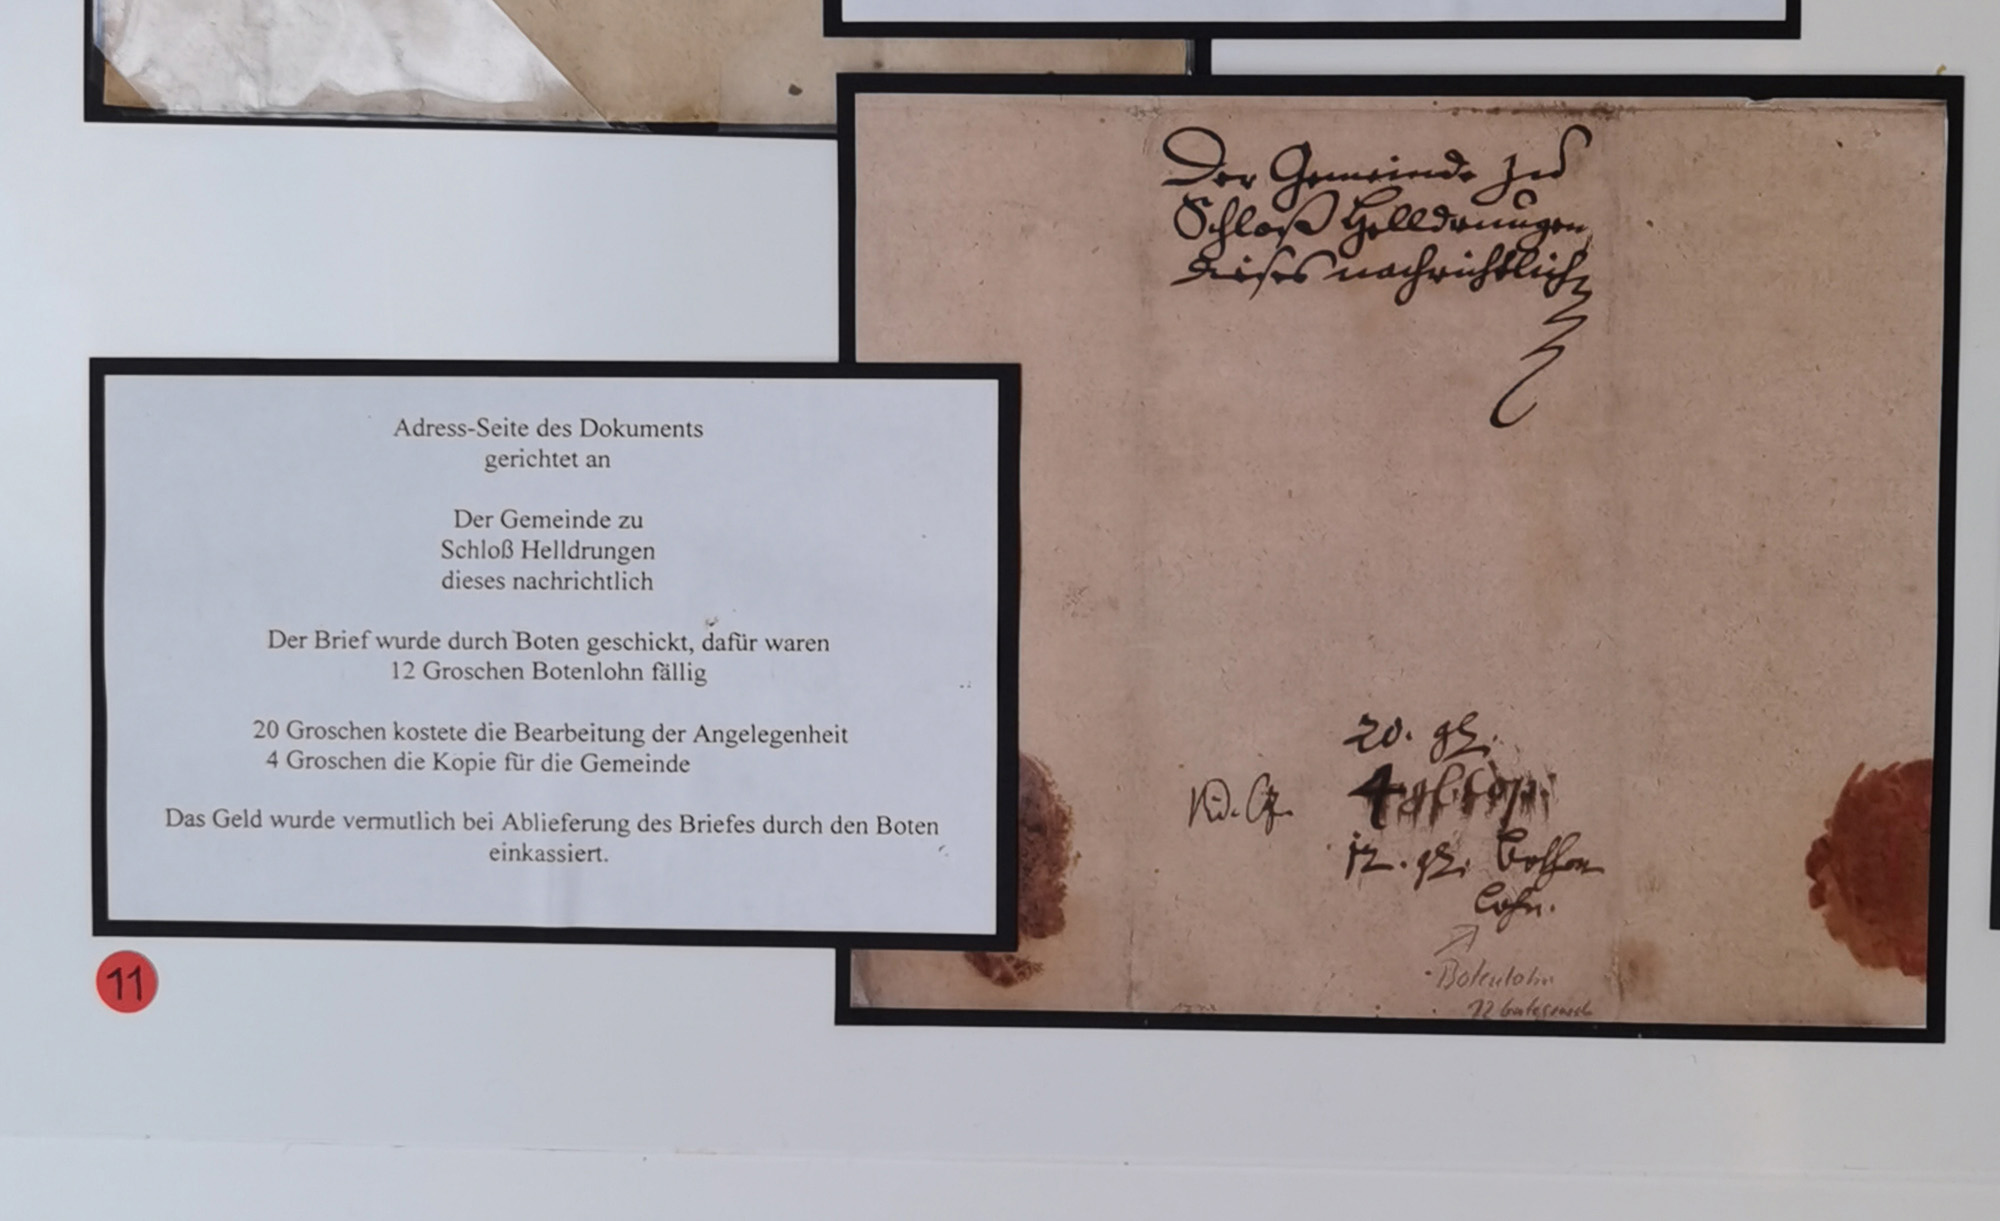 Der Gemeinde zu
Schloß Helldrungen
dieses nachrichtlich
Adress-Seite des Dokuments
gerichtet an
Der Gemeinde zu
Schloß Helldrungen
dieses nachrichtlich
Der Brief wurde durch Boten geschickt, dafür waren
12 Groschen Botenlohn fällig
20 Groschen kostete die Bearbeitung der Angelegenheit
4 Groschen die Kopie für die Gemeinde
Das Geld wurde vermutlich bei Ablieferung des Briefes durch den Boten
einkassiert.
20. gl.
4 gl
12. gl. Bothen
Lohn.
Botenlohn
12
11